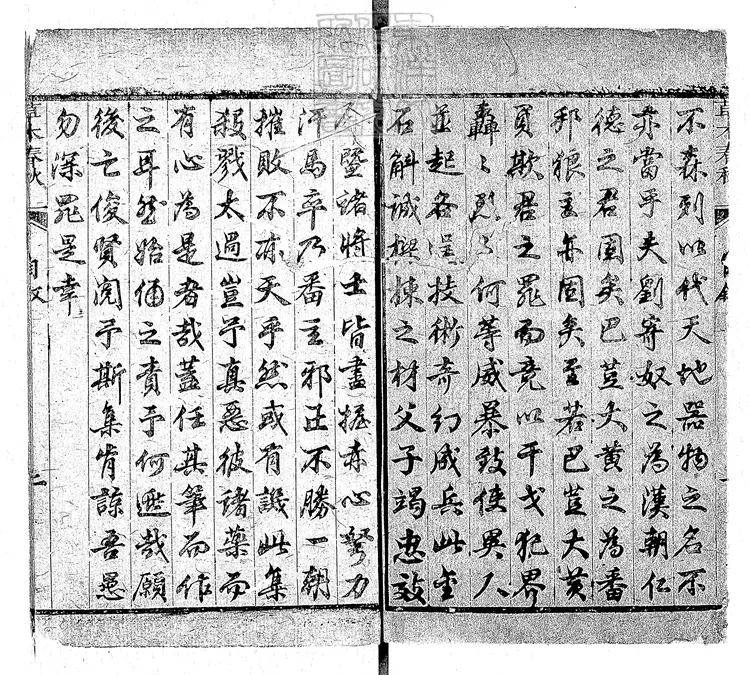 不森列以代天地器物之名不
亦當乎夫劉寄奴之為漢朝仁
德之君固矣巴荳大黄之為番
邦狼主亦固矣至若巴荳大黄
冥欺君之罪而竟以干戈犯界
轟〻烈〻何等威暴致使異人
並起各逞技術奇幻成兵此金
石斛誠樑棟之材父子竭忠致
暨諸將士皆盡據赤心努力
汗馬卒乃番主邪正不勝一朝
摧敗不亦天乎然或有譏此集
殺戮太過豈予真惡彼諸藥而
有心為是者哉蓋任其筆而作
之耳然始俑之責予何逃哉願
後亡俊賢閱予斯集肯諒吾愚
勿深罪是幸
草木春秋
自敘